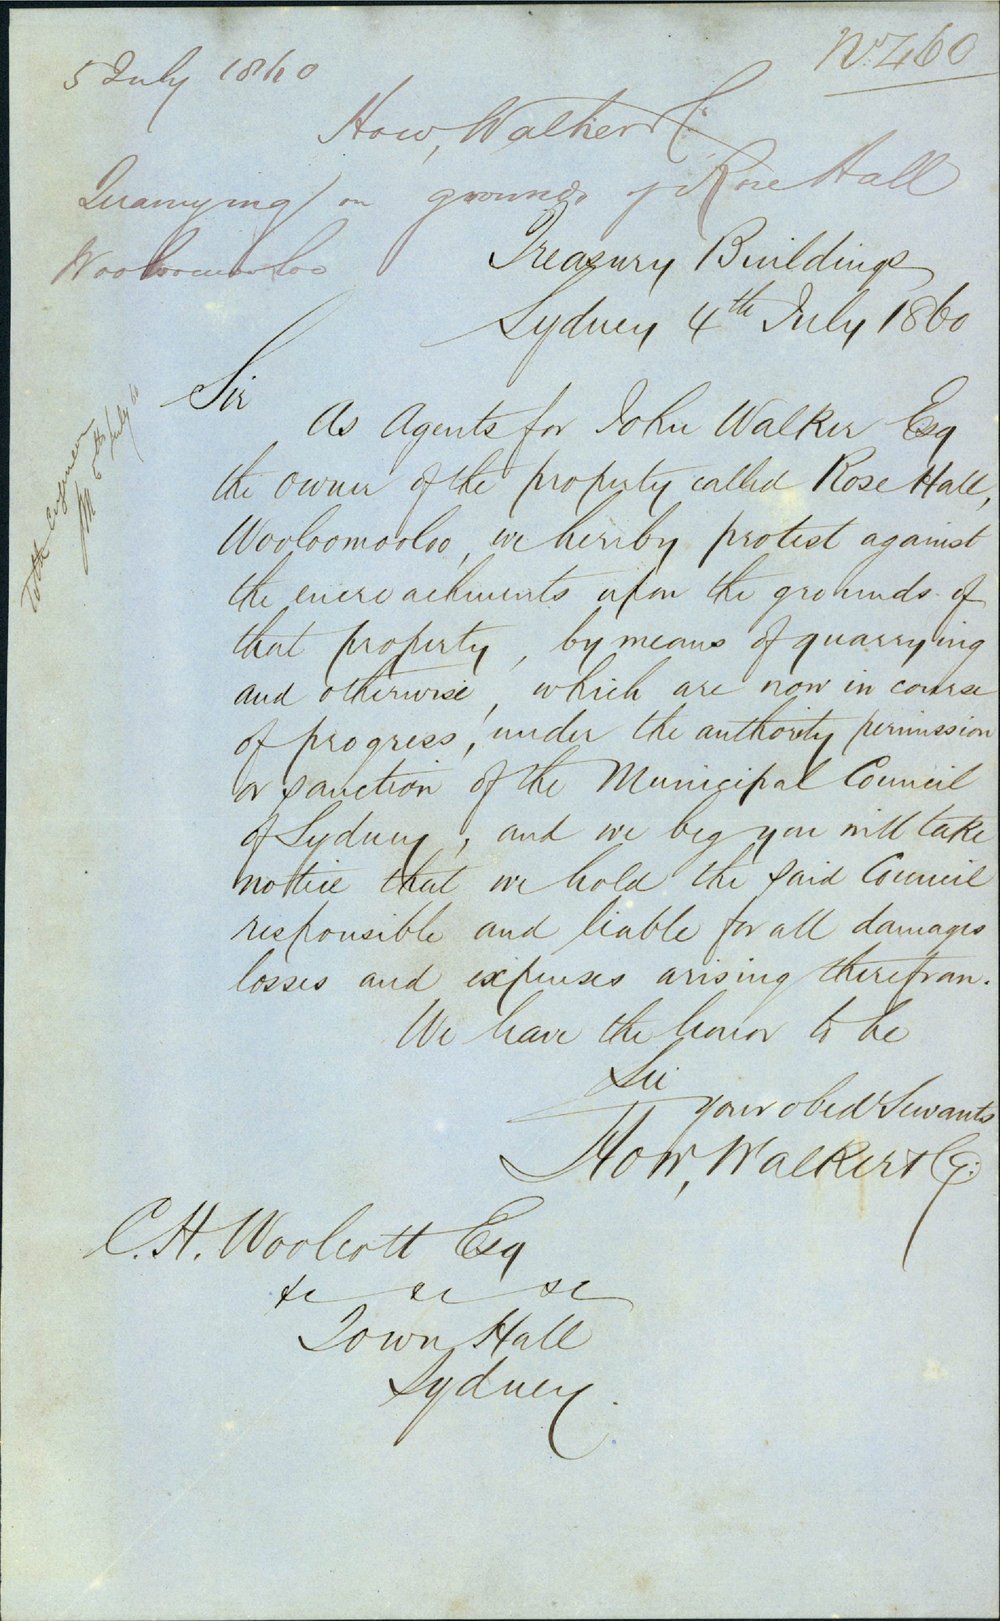 No. 460
5 July 1860
How, Walker & Co.
Quarrying on grounds of Rose Hall
Woolloomooloo
Treasury Buildings
Sydney 4th July 1860
Sir
As Agents for John Walker Esq
the owner of the property called Rose Hall,
Wooloomooloo, we hereby protest against
the encroachments upon the grounds of
that property, by means of quarrying
and otherwise, which are now in course
of progress, under the authority permission
or sanction of the Municipal Council
of Sydney, and we beg you will take
notice that we hold the said Council
responsible and liable for all damages
losses and expenses arising therefrom.
We have the honor to be
Sir
your obed Servants
How, Walker & Co.
C. H. Woolcott Esq
&c &c &c
Town Hall
Sydney.
To the Engineer
5th July 60